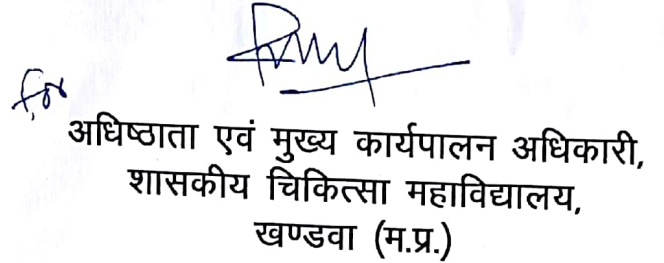 for
अधिष्ठाता एवं मुख्य कार्यपालन अधिकारी,
शासकीय चिकित्सा महाविद्यालय,
खण्डवा (म.प्र.)